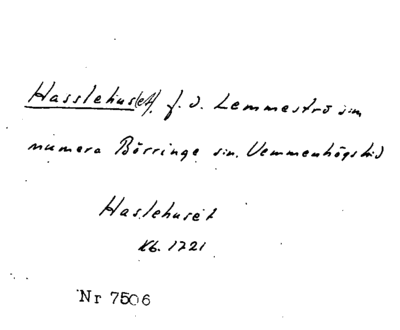 Hasslehus(et) f. d. Lemmeströ sn
numera Börringe sn. Vemmenhögs hd
Haslehuset
Kb. 1721
Nr 7506